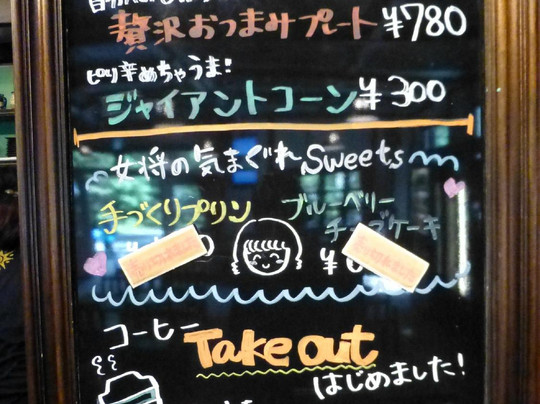 贅沢おつまみプレート ¥780
ピリ辛めちゃうま!
ジャイアントコーン ¥300
女将の気まぐれSweets
手づくりプリン
ブルーベリー
チーズケーキ
コーヒー
Take out
はじめました!